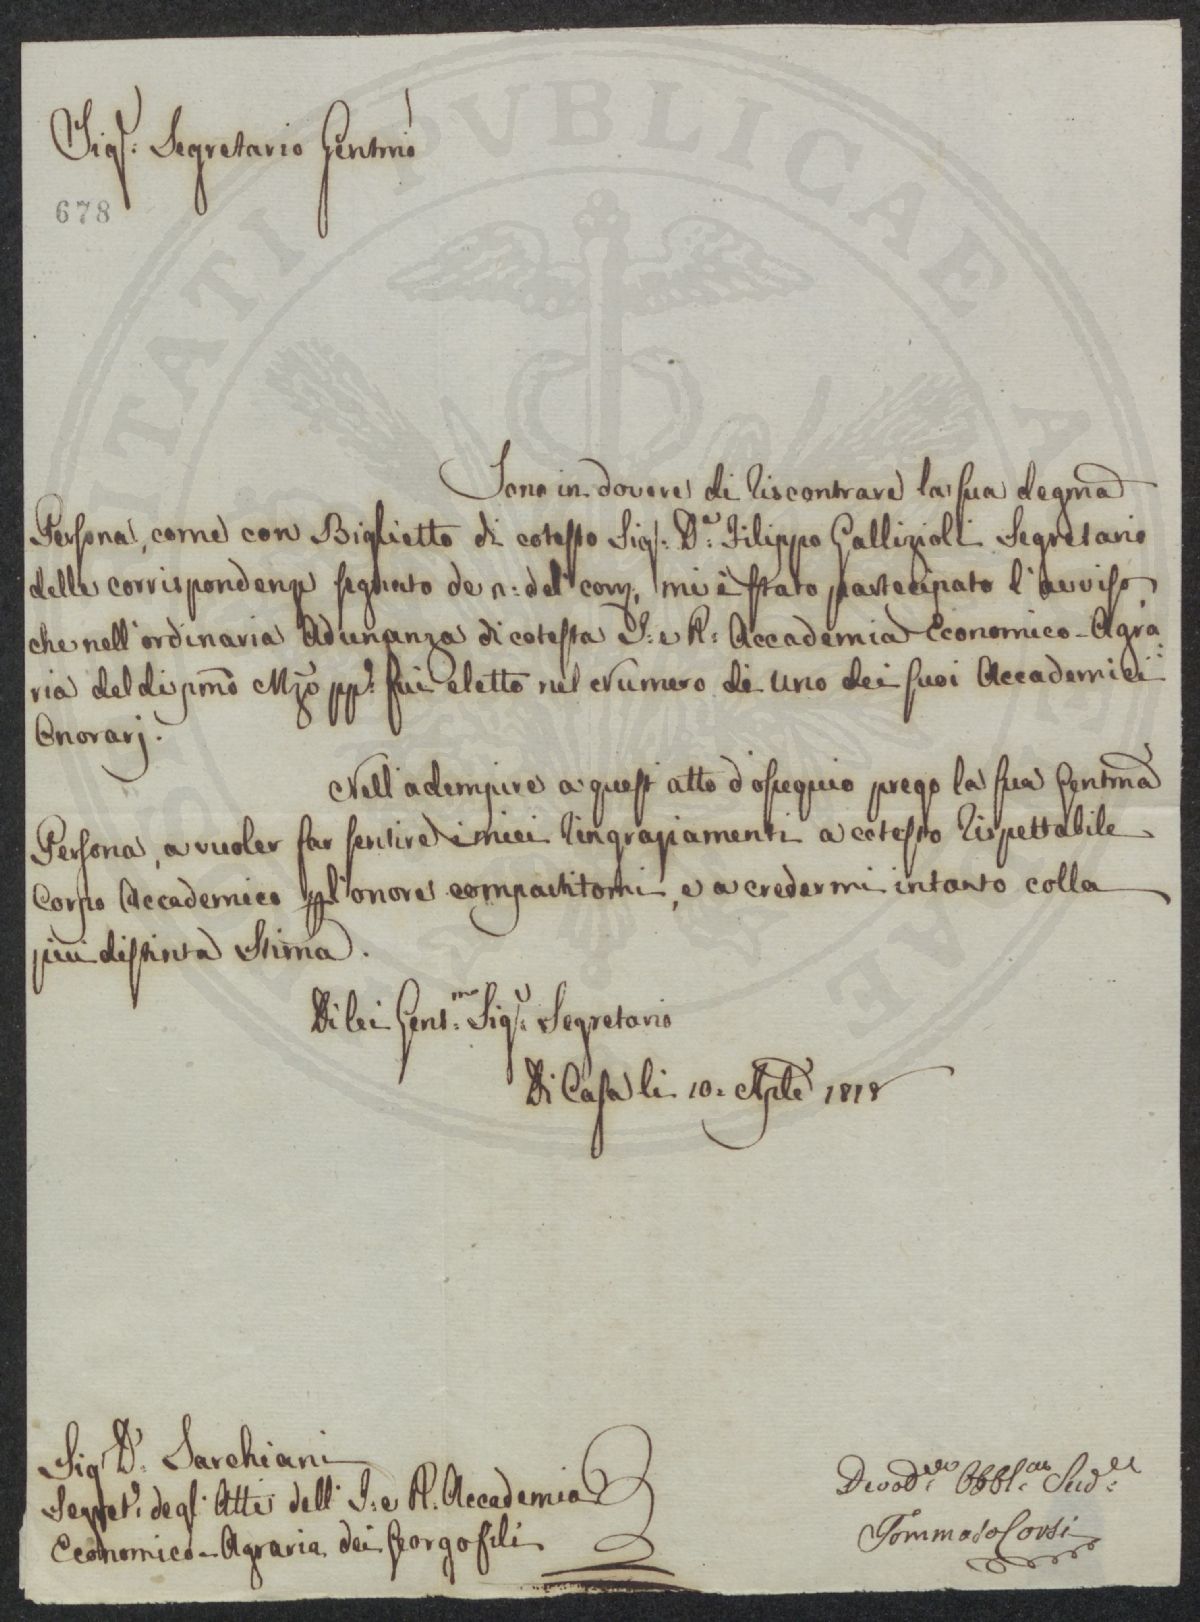 Sigr: Segretario Gentmo
678
Sono in dovere di riscontrare la sua degma
Persona, come con Biglietto di cotesto Sigr: Dr: Filippo Gallizioli Segretario
delle corrispondenze segnato de n: del corr, mi è stato partecipato l'avviso,
che nell'ordinaria Adunanza di cotesta I: e R: Accademia Economico-Agra
ria del di pmo Mzo pp: fui eletto nel Numero di uno dei suoi Accademici
Onorarj.
Nell'adempire a quest'atto d'ossequio prego la sua Gentma
Persona, a vuoler far sentire i miei ringraziamenti a cotesto rispettabile
Corpo Accademico pl'onore compartitomi, e a credermi intanto colla
più distinta Stima.
Di lei Gent:mo Sigr: Segretario
Di Casa li 10: Aple 1818
Sig Dr: Sarchiani
Segret: degl'Atti dell'I: e R: Accademia
Economico-Agraria dei Georgofili
Devod:mo Obbl:mo Sud:e
Tommaso Corsi
PVBLICAE